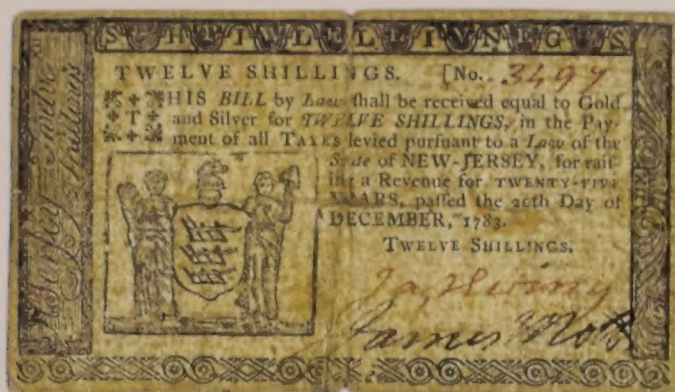 SHTIWLELLIVNEGS
TWELVE SHILLINGS. [No. 3497
THIS BILL by Law ſhall be received equal to Gold
and Silver for TWELVE SHILLINGS, in the Pay-
ment of all TAXES levied purſuant to a Law of the
State of NEW-JERSEY, for raiſ-
ing a Revenue for TWENTY-FIVE
YEARS, paſſed the 20th Day of
DECEMBER, 1783.
TWELVE SHILLINGS.
Jas Ewing
James Mott
Jerſey Twelve
Shillings